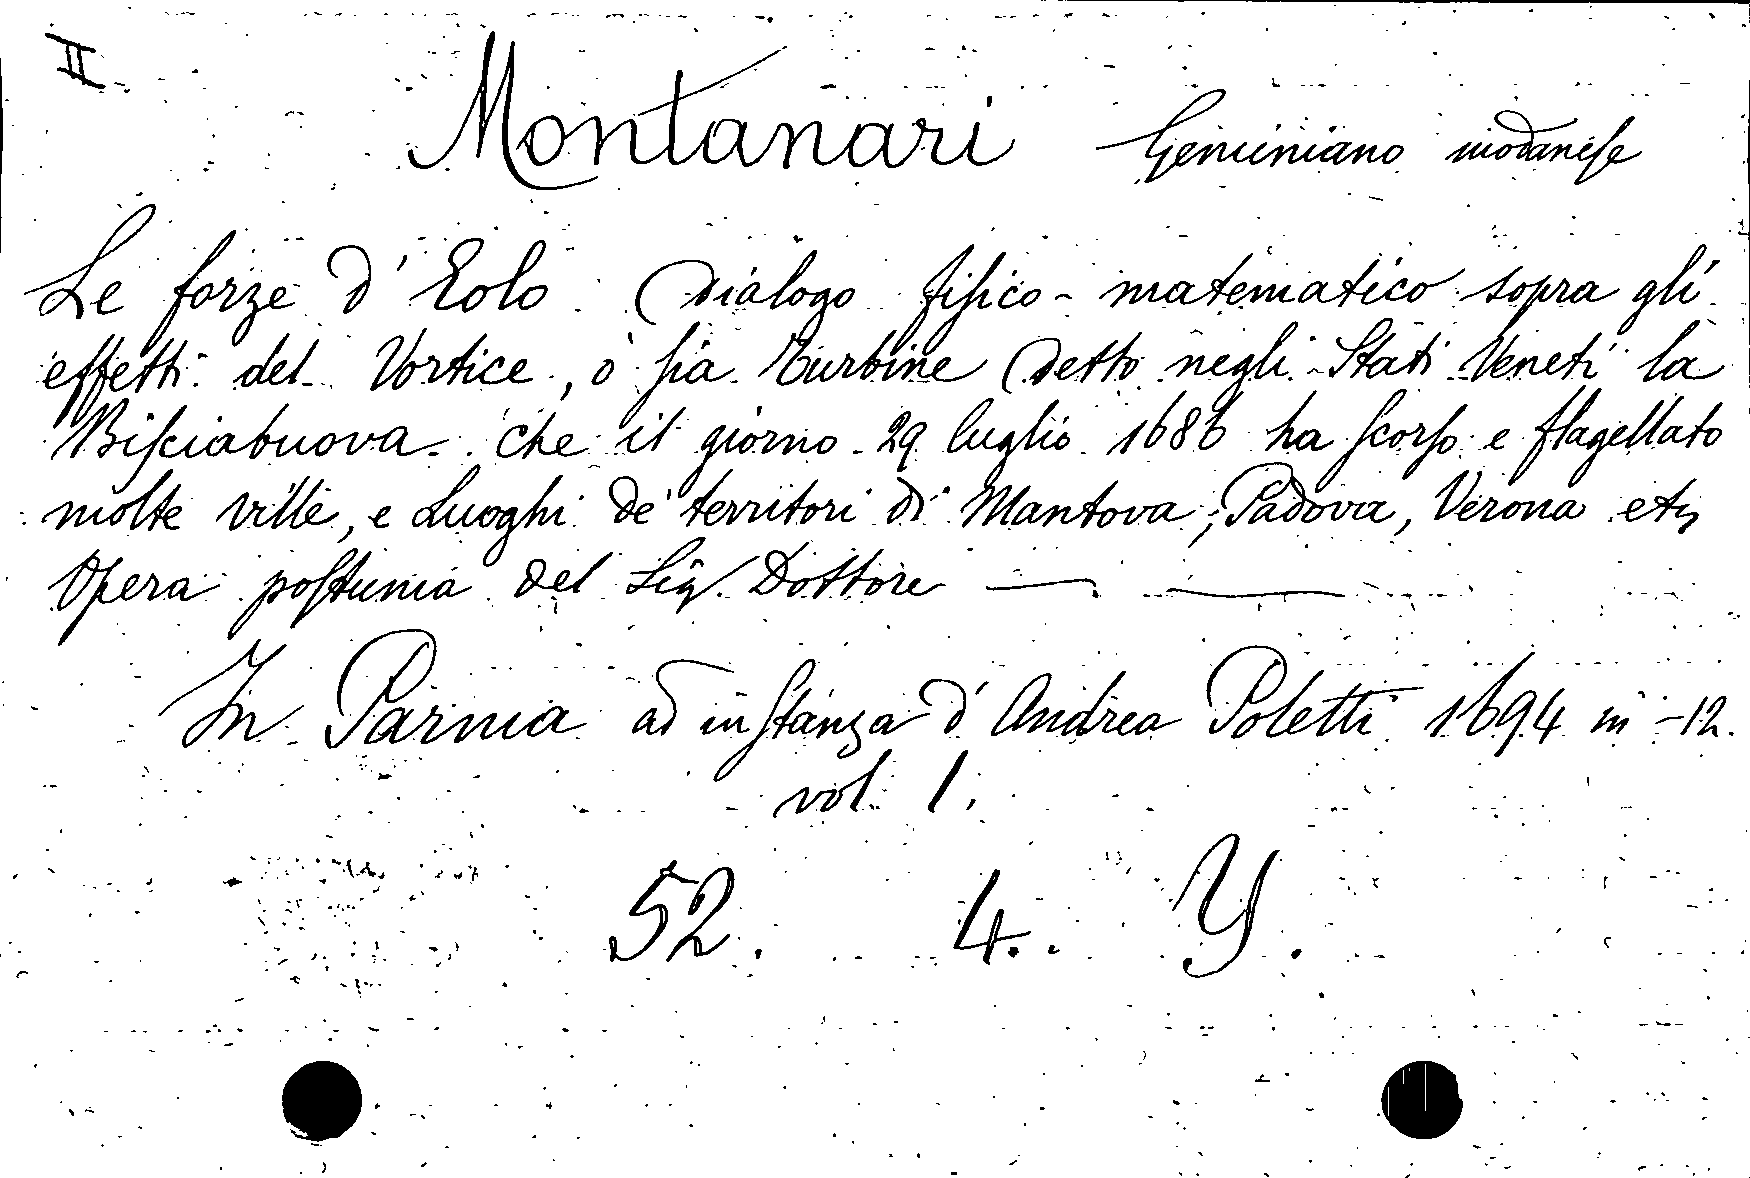 II
Montanari Geminiano modanese
Le forze d'Eolo. Dialogo fisico-matematico sopra gli
effetti del Vortice, o sia Turbine detto negli Stati Veneti la
Bisciabuova. che il giorno 29 luglio 1686 ha scorso e flagellato
molte ville, e Luoghi de' territori di Mantova, Padova, Verona etc
Opera postuma del Sig. Dottore — —
In Parma ad instanza d'Andrea Poletti 1694 in-12.
vol 1.
52. 4. Y.